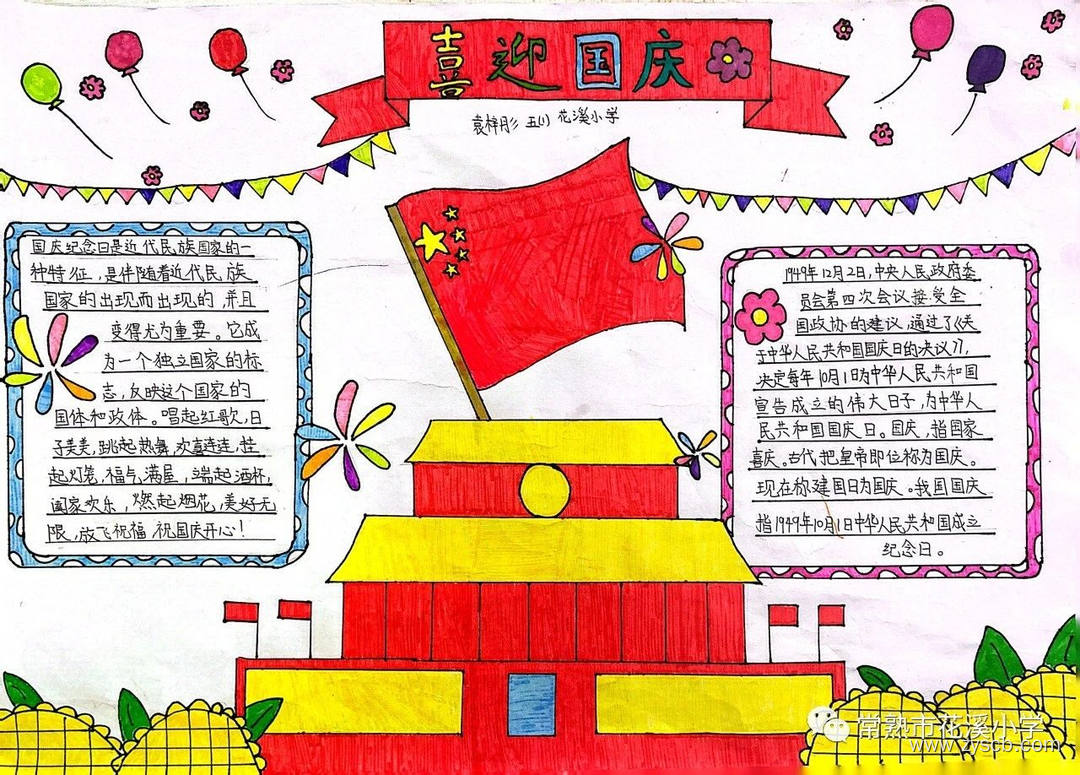 喜迎国庆
袁梓彤 五(1) 花溪小学
国庆纪念日是近代民族国家的一
种特征，是伴随着近代民族
国家的出现而出现的，并且
变得尤为重要。它成
为一个独立国家的标
志，反映这个国家的
国体和政体。唱起红歌，日
子美美，跳起热舞，欢喜连连，挂
起灯笼，福气满屋，端起酒杯，
阖家欢乐，燃起烟花，美好无
限，放飞祝福，祝国庆开心！
1949年12月2日，中央人民政府委
员会第四次会议接受全
国政协的建议，通过了《关
于中华人民共和国国庆日的决议》，
决定每年10月1日为中华人民共和国
宣告成立的伟大日子，为中华人
民共和国国庆日。国庆，指国家
喜庆。古代把皇帝即位称为国庆。
现在称建国日为国庆。我国国庆
指1949年10月1日中华人民共和国成立
纪念日。
常熟市花溪小学
www.zyscb.com